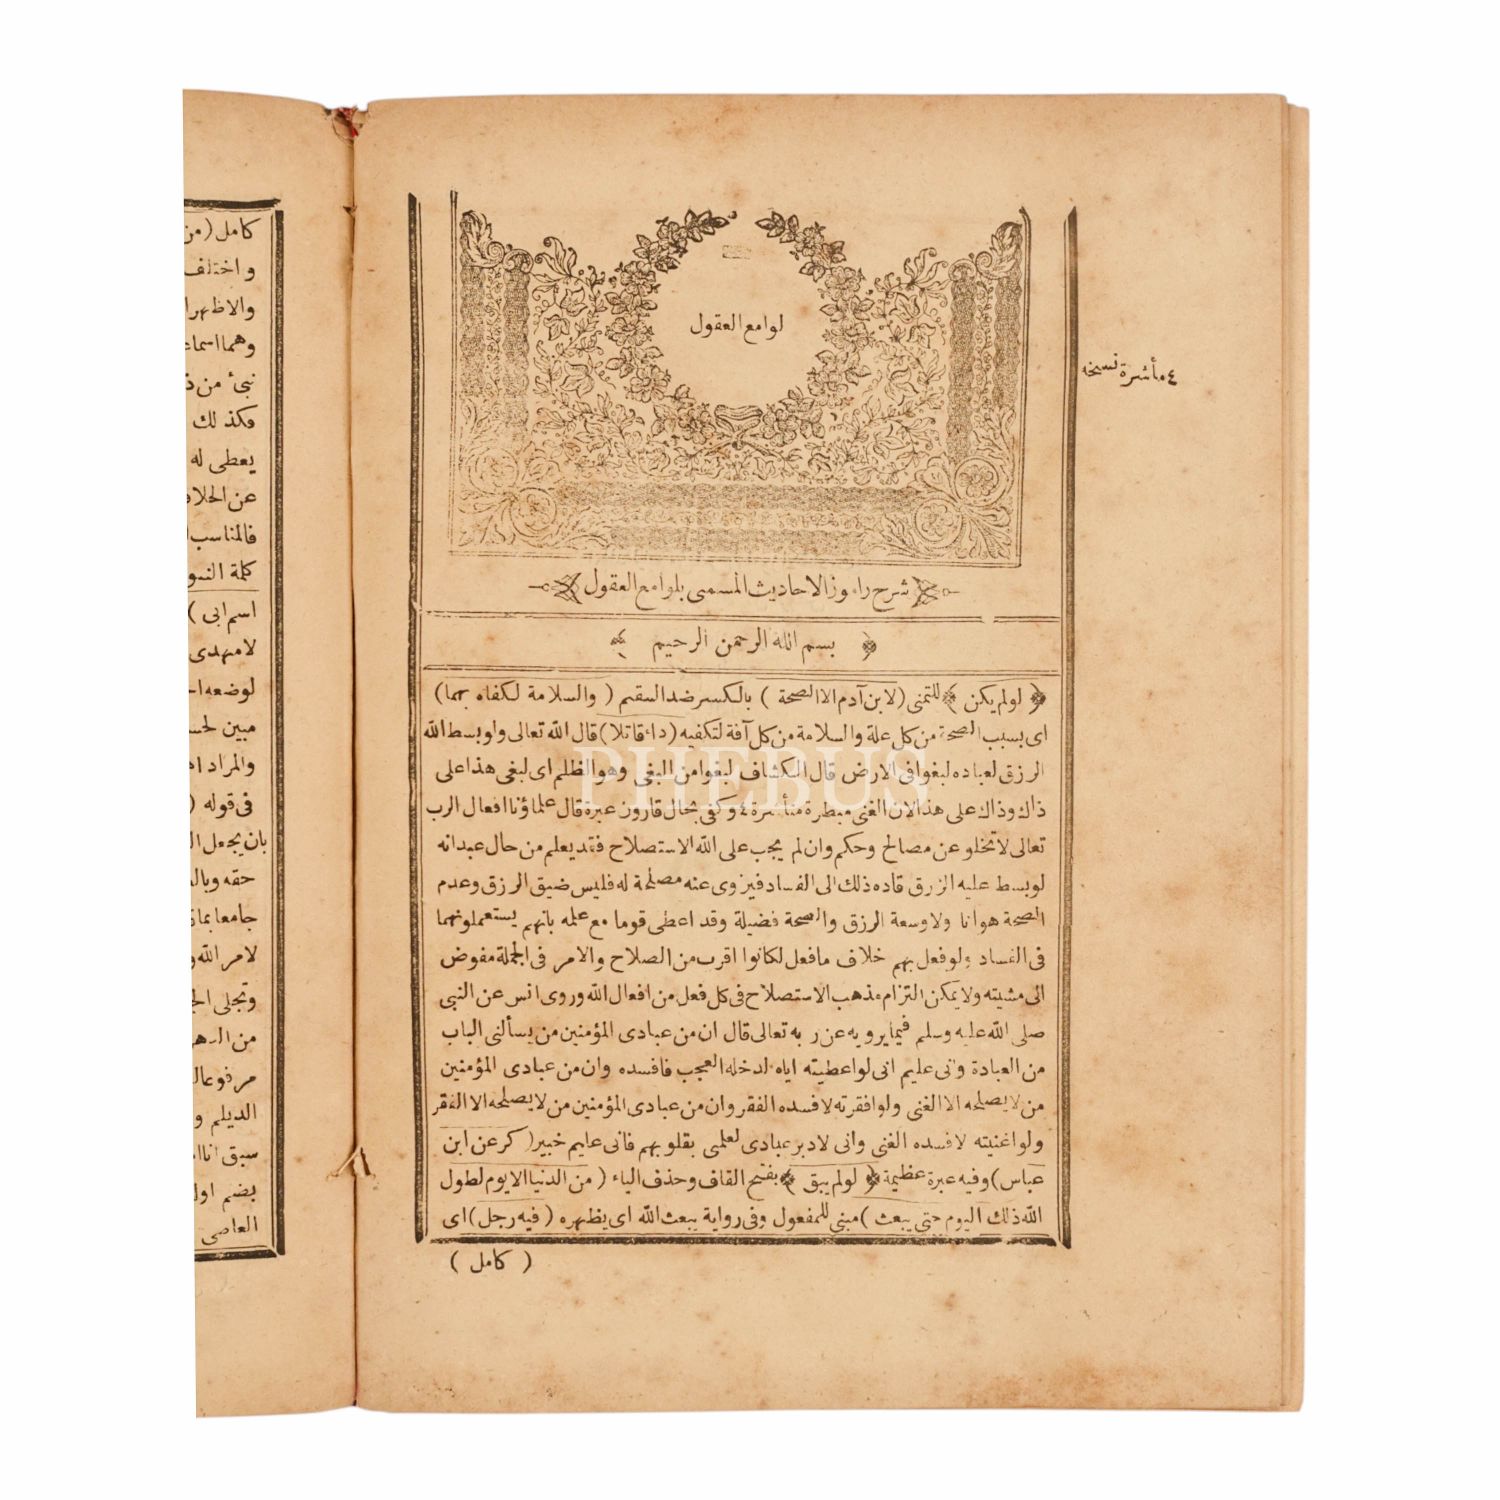 لوامع العقول
٤ مأشرة نسخه
شرح راموز الاحاديث المسمى بلوامع العقول
بسم الله الرحمن الرحيم
﴿ لولم يكن ﴾ للتمنى (لابن آدم الا الصحة ) بالكسر ضد السقم ( والسلامة لكفاه بهما )
اى بسبب الصحة من كل علة والسلامة من كل آفة لتكفيه (داء قاتلا) قال الله تعالى ولو بسط الله
الرزق لعباده لبغوا فى الارض قال الكشاف لبغوا من البغى وهو الظلم اى لبغى هذا على
ذاك وذاك على هذا لان الغنى مبطرة مأشرة ٤ وكفى بحال قارون عبرة قال علماؤنا افعال الرب
تعالى لا تخلو عن مصالح وحكم وان لم يجب على الله الاستصلاح فقد يعلم من حال عبد انه
لو بسط عليه الرزق قاده ذلك الى الفساد فيزوى عنه مصلحة له فليس ضيق الرزق وعدم
الصحة هوانا ولا وسعة الرزق والصحة فضيلة وقد اعطى قوما مع علمه بانهم يستعملونهما
فى الفساد ولو فعل بهم خلاف ما فعل لكانوا اقرب من الصلاح والامر فى الجملة مفوض
الى مشيته ولا يمكن التزام مذهب الاستصلاح فى كل فعل من افعال الله وروى انس عن النبى
صلى الله عليه وسلم فيما يرويه عن ربه تعالى قال ان من عبادى المؤمنين من يسألنى الباب
من العبادة وانى عليم انى لو اعطيته اياه لدخله العجب فافسده وان من عبادى المؤمنين
من لا يصلحه الا الغنى ولو افقرته لافسده الفقر وان من عبادى المؤمنين من لا يصلحه الا الفقر
ولو اغنيته لافسده الغنى وانى لادبر عبادى لعلمى بقلوبهم فانى عليم خبير ( كر عن ابن
عباس ) وفيه عبرة عظيمة ﴿ لولم يبق ﴾ بفتح القاف وحذف الياء ( من الدنيا الا يوم لطول
الله ذلك اليوم حتى يبعث ) مبنى للمفعول وفى رواية يبعث الله اى يظهره ( فيه رجل ) اى
( كامل )
PHEBUS
كامل (من
واختلف
والاظهر ا
وهما اسما
نبى من ذ
فكذلك
يعطى له
عن الخلا
فالمناسب
كلمة النبو
اسم ابى )
لا مهدى
لوضعه ا
مبين لحس
والمراد ا
فى قوله (
بان يجعل ال
حقه وبال
جامعا بما
لامر الله و
وتجلى الج
من الره
مرفوعا
الديلم و
سبق انا
بضم اول
العاصى